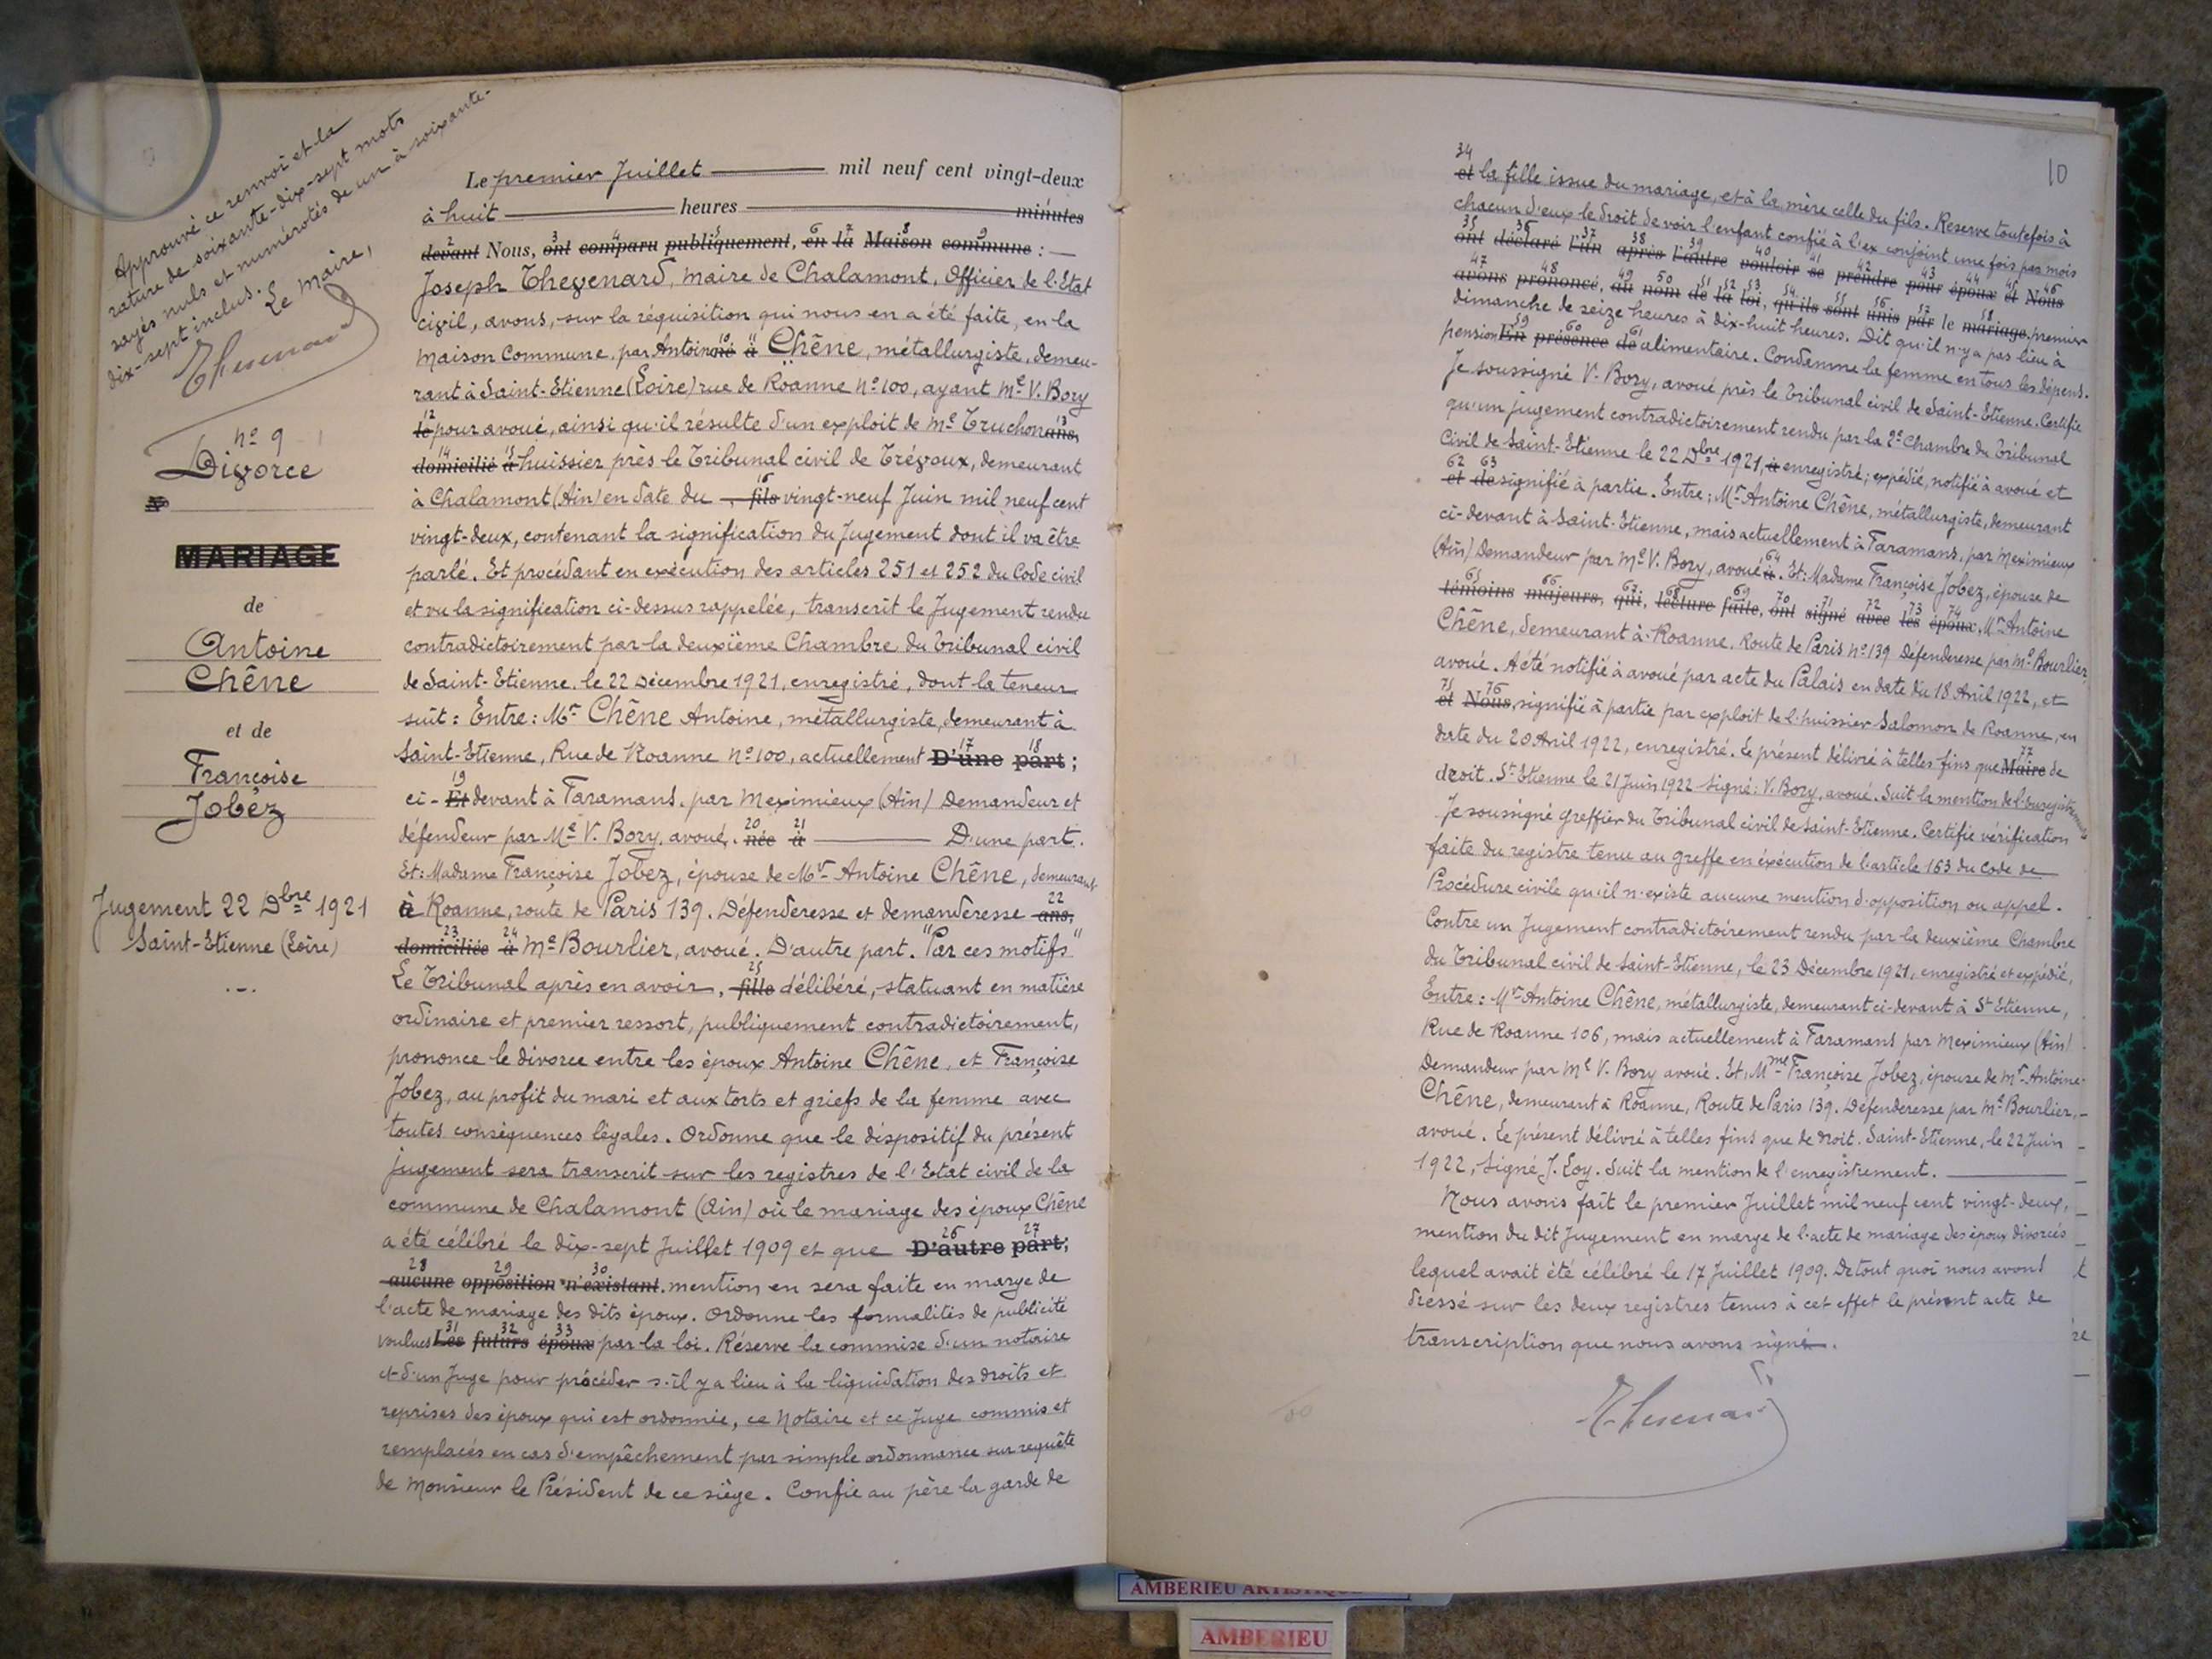 Approuvé ce renvoi et la
rature de soixante-dix-sept mots
rayés nuls et numérotés de un à soixante-
dix-sept inclus.
Le Maire,
nº 9
Divorce
MARIAGE
de
Antoine
Chêne
et de
Françoise
Jobez
Jugement 22 Dbre 1921
Saint-Etienne (Loire)
Le premier Juillet mil neuf cent vingt-deux
à huit heures minutes
devant Nous, ont comparu publiquement, en la Maison commune :
Joseph Thevenard, maire de Chalamont, Officier de l'Etat
civil, avons, sur la réquisition qui nous en a été faite, en la
Maison Commune, par Antoine né à Chêne, métallurgiste, demeu-
rant à Saint-Etienne (Loire) rue de Roanne Nº 100, ayant Me V. Bory
le pour avoué, ainsi qu'il résulte d'un exploit de Me Truchon ans,
domicilié à huissier près le Tribunal civil de Trévoux, demeurant
à Chalamont (Ain) en date du , fils vingt-neuf Juin mil neuf cent
vingt-deux, contenant la signification du Jugement dont il va être
parlé. Et procédant en exécution des articles 251 et 252 du Code civil
et vu la signification ci-dessus rappelée, transcrit le Jugement rendu
contradictoirement par la deuxième Chambre du Tribunal civil
de Saint-Etienne, le 22 Décembre 1921, enregistré, dont la teneur
suit : Entre : Mr Chêne Antoine, métallurgiste, demeurant à
Saint-Etienne, Rue de Roanne Nº 100, actuellement D'une part ;
ci- Et devant à Faramans, par Meximieux (Ain) Demandeur et
défendeur par Me V. Bory, avoué, née à D'une part.
Et : Madame Françoise Jobez, épouse de Mr Antoine Chêne, demeurant
à Roanne, route de Paris 139. Défenderesse et demanderesse ans,
domiciliée à Me Bourlier, avoué. D'autre part. "Par ces motifs"
Le Tribunal après en avoir, fille délibéré, statuant en matière
ordinaire et premier ressort, publiquement contradictoirement,
prononce le divorce entre les époux Antoine Chêne, et Françoise
Jobez, au profit du mari et aux torts et griefs de la femme avec
toutes conséquences légales. Ordonne que le dispositif du présent
jugement sera transcrit sur les registres de l'Etat civil de la
commune de Chalamont (Ain) où le mariage des époux Chêne
a été célébré le dix-sept Juillet 1909 et que D'autre part ;
aucune opposition n'existant. mention en sera faite en marge de
l'acte de mariage des dits époux. Ordonne les formalités de publicité
voulues Les futurs époux par la loi. Réserve la commise d'un notaire
et d'un Juge pour procéder s'il y a lieu à la liquidation des droits et
reprises des époux qui est ordonnée, ce Notaire et ce Juge commis et
remplacés en cas d'empêchement par simple ordonnance sur requête
de Monsieur le Président de ce siège. Confie au père la garde de
10
et la fille issue du mariage, et à la mère celle du fils. Reserve toutefois à
chacun d'eux le droit de voir l'enfant confié à l'ex conjoint une fois par mois
ont déclaré l'un après l'autre vouloir se prendre pour époux et Nous
avons prononcé, au nom de la loi, qu'ils sont unis par le mariage. premier
dimanche de seize heures à dix-huit heures. Dit qu'il n'y a pas lieu à
pension En présence de alimentaire. Condamne la femme en tous les dépens.
Je soussigné V. Bory, avoué près le Tribunal civil de Saint-Etienne. Certifie
qu'un jugement contradictoirement rendu par la 2e Chambre du Tribunal
Civil de Saint-Etienne le 22 Dbre 1921, à enregistré ; expédié, notifié à avoué et
et de signifié à partie. Entre : Mr Antoine Chêne, métallurgiste, demeurant
ci-devant à Saint-Etienne, mais actuellement à Faramans, par Meximieux
(Ain) Demandeur par Me V. Bory, avoué à. Et : Madame Françoise Jobez, épouse de
témoins majeurs, qui, lecture faite, ont signé avec les époux, Mr Antoine
Chêne, demeurant à Roanne, Route de Paris Nº 139 Défenderesse par Me Bourlier,
avoué. A été notifié à avoué par acte du Palais en date du 18 Avril 1922, et
et Nous, signifié à partie par exploit de l'huissier Salomon de Roanne, en
date du 20 Avril 1922, enregistré. Le présent délivré à telles fins que Maire de
droit. St Etienne le 21 Juin 1922 signé : V. Bory, avoué. Suit la mention de l'enregistrement
Je soussigné Greffier du Tribunal civil de Saint-Etienne. Certifie vérification
faite du registre tenu au greffe en exécution de l'article 163 du Code de
Procédure civile qu'il n'existe aucune mention d'opposition ou appel.
Contre un Jugement contradictoirement rendu par la deuxième Chambre
du Tribunal civil de Saint-Etienne, le 23 Décembre 1921, enregistré et expédié,
Entre : Mr Antoine Chêne, métallurgiste, demeurant ci-devant à St Etienne,
Rue de Roanne 106, mais actuellement à Faramans par Meximieux (Ain)
Demandeur par Me V. Bory avoué. Et, Mme Françoise Jobez, épouse de Mr Antoine
Chêne, demeurant à Roanne, Route de Paris 139. Défenderesse par Me Bourlier,
avoué. Le présent délivré à telles fins que de droit. Saint-Etienne, le 22 Juin
1922, Signé J. Loy. Suit la mention de l'enregistrement.
Nous avons fait le premier Juillet mil neuf cent vingt-deux,
mention du dit Jugement en marge de l'acte de mariage des époux divorcés
lequel avait été célébré le 17 Juillet 1909. De tout quoi nous avons
dressé sur les deux registres tenus à cet effet le présent acte de
transcription que nous avons signé.
AMBERIEU
AMBERIEU